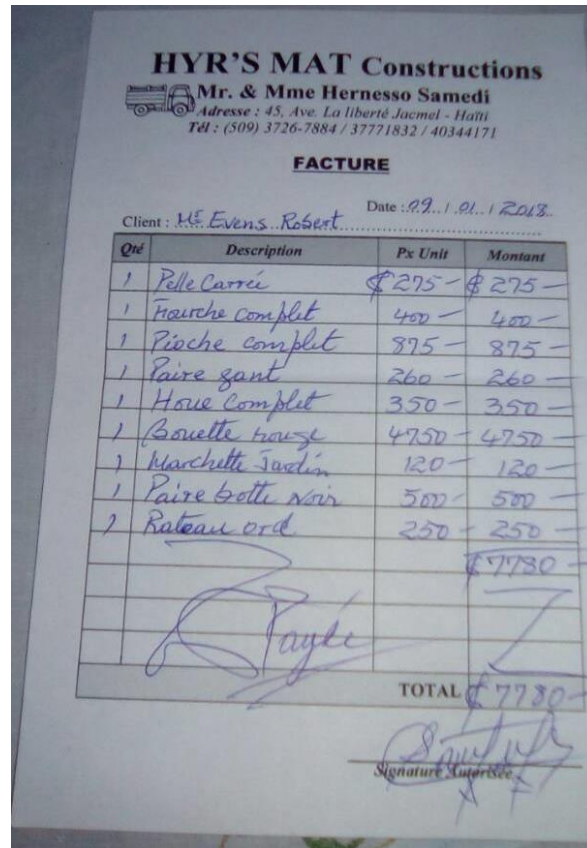 HYR'S MAT Constructions
Mr. & Mme Hernesso Samedi
Adresse : 45, Ave. La liberté Jacmel - Haïti
Tél : (509) 3726-7884 / 37771832 / 40344171
FACTURE
Date : 09 / 01 / 2018
Client : Mr Evens Robert
Qté Description Px Unit Montant
1 Pelle Carrée $275- $275-
1 Fourche complet 400- 400-
1 Pioche complet 875- 875-
1 Paire gant 260- 260-
1 Houe Complet 350- 350-
1 Bouette rouge 4750- 4750-
1 Marchette Jardin 120- 120-
1 Paire botte Noir 500- 500-
1 Rateau ord 250- 250-
$7780-
Payée
TOTAL $7780-
Signature Autorisée